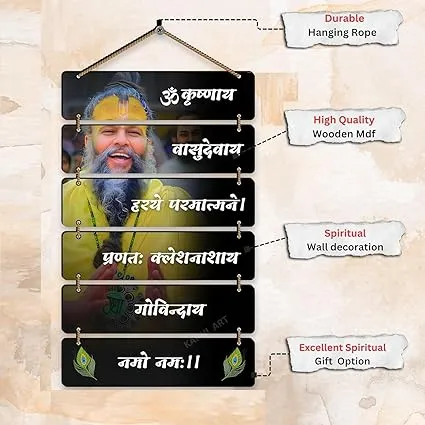 Durable
Hanging Rope
ॐ कृष्णाय
वासुदेवाय
हरये परमात्मने।
प्रणतः क्लेशनाशाय
गोविन्दाय
नमो नमः।।
High Quality
Wooden Mdf
Spiritual
Wall decoration
Excellent Spiritual
Gift Option